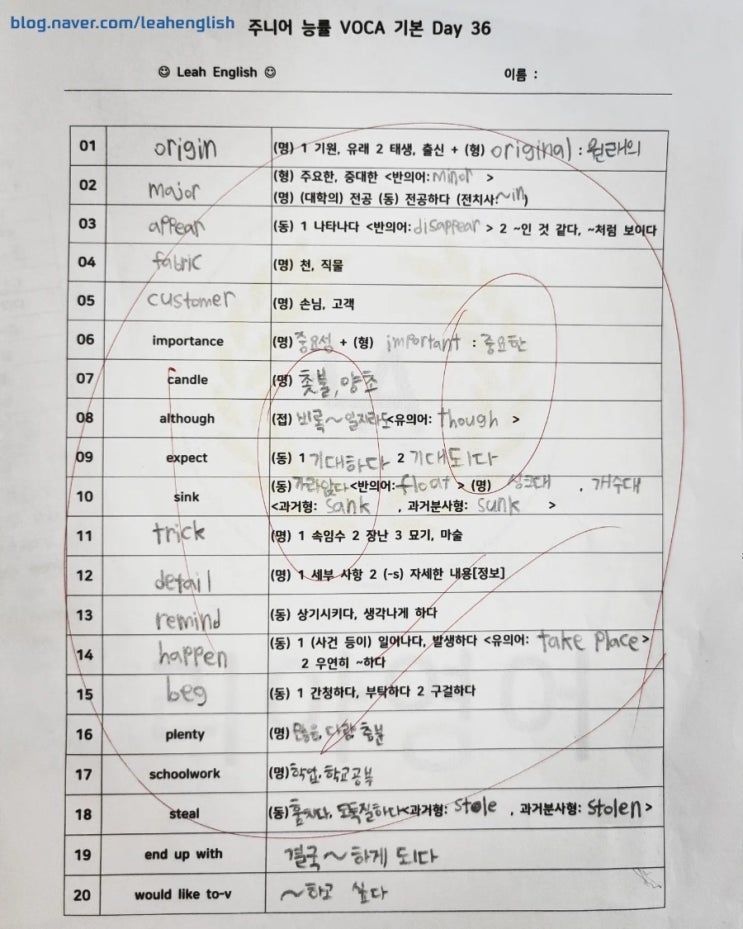 blog.naver.com/leahenglish
주니어 능률 VOCA 기본 Day 36
☺ Leah English ☺ 이름 :
01 origin (명) 1 기원, 유래 2 태생, 출신 + (형) original : 원래의
02 major (형) 주요한, 중대한 <반의어: minor >
(명) (대학의) 전공 (동) 전공하다 (전치사:~in)
03 appear (동) 1 나타나다 <반의어: disappear > 2 ~인 것 같다, ~처럼 보이다
04 fabric (명) 천, 직물
05 customer (명) 손님, 고객
06 importance (명) 중요성 + (형) important : 중요한
07 candle (명) 촛불, 양초
08 although (접) 비록~일지라도 <유의어: though >
09 expect (동) 1 기대하다 2 기대되다
10 sink (동) 가라앉다 <반의어: float > (명) 싱크대 , 개수대
<과거형: sank , 과거분사형: sunk >
11 trick (명) 1 속임수 2 장난 3 묘기, 마술
12 detail (명) 1 세부 사항 2 (-s) 자세한 내용[정보]
13 remind (동) 상기시키다, 생각나게 하다
14 happen (동) 1 (사건 등이) 일어나다, 발생하다 <유의어: take place >
2 우연히 ~하다
15 beg (동) 1 간청하다, 부탁하다 2 구걸하다
16 plenty (명) 많음, 다량, 충분
17 schoolwork (명) 학업, 학교공부
18 steal (동) 훔치다, 도둑질하다 <과거형: stole , 과거분사형: stolen >
19 end up with 결국 ~하게 되다
20 would like to-v ~하고 싶다